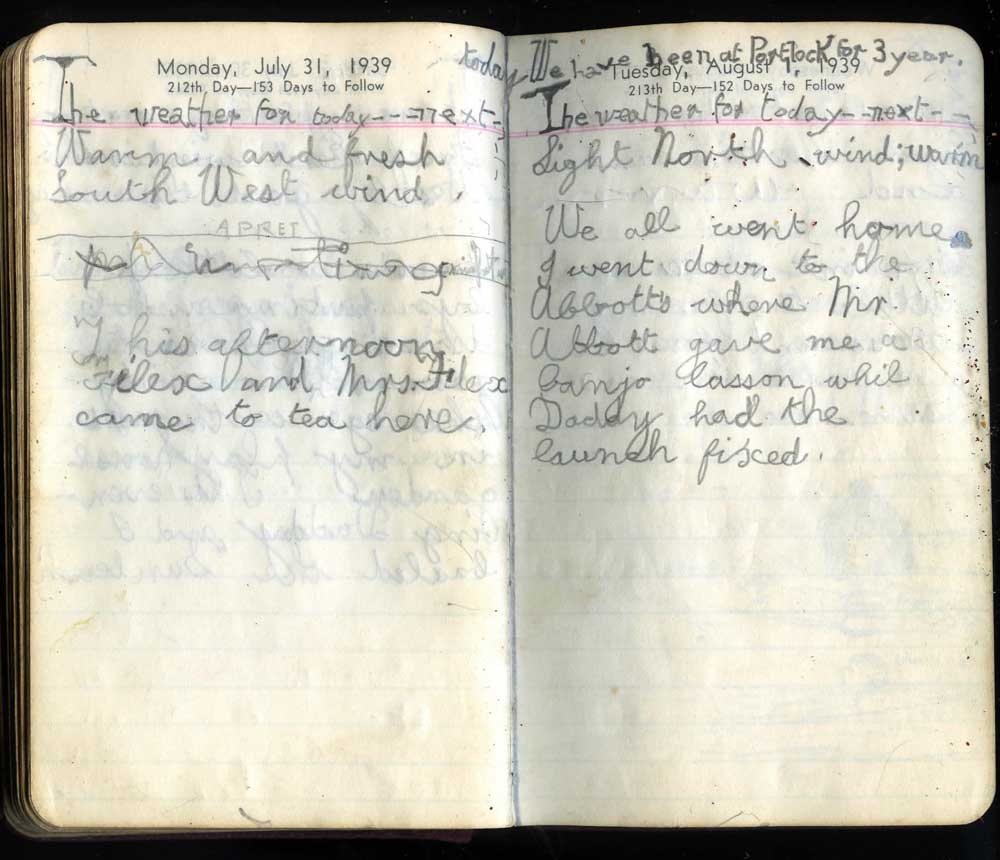 Monday, July 31, 1939
212th Day—153 Days to Follow
The weather for today---next-
Warm and fresh
South West wind.
APRET
This afternoon
Filex and Mrs. Filex
came to tea here.
today We have been at Portlock for 3 year.
Tuesday, August 1, 1939
213th Day—152 Days to Follow
The weather for today--next--
Light North wind; warm
We all went home
I went down to the
Abbotts where Mr
Abbott gave me a
banjo lasson whil
Daddy had the
launch fixed.